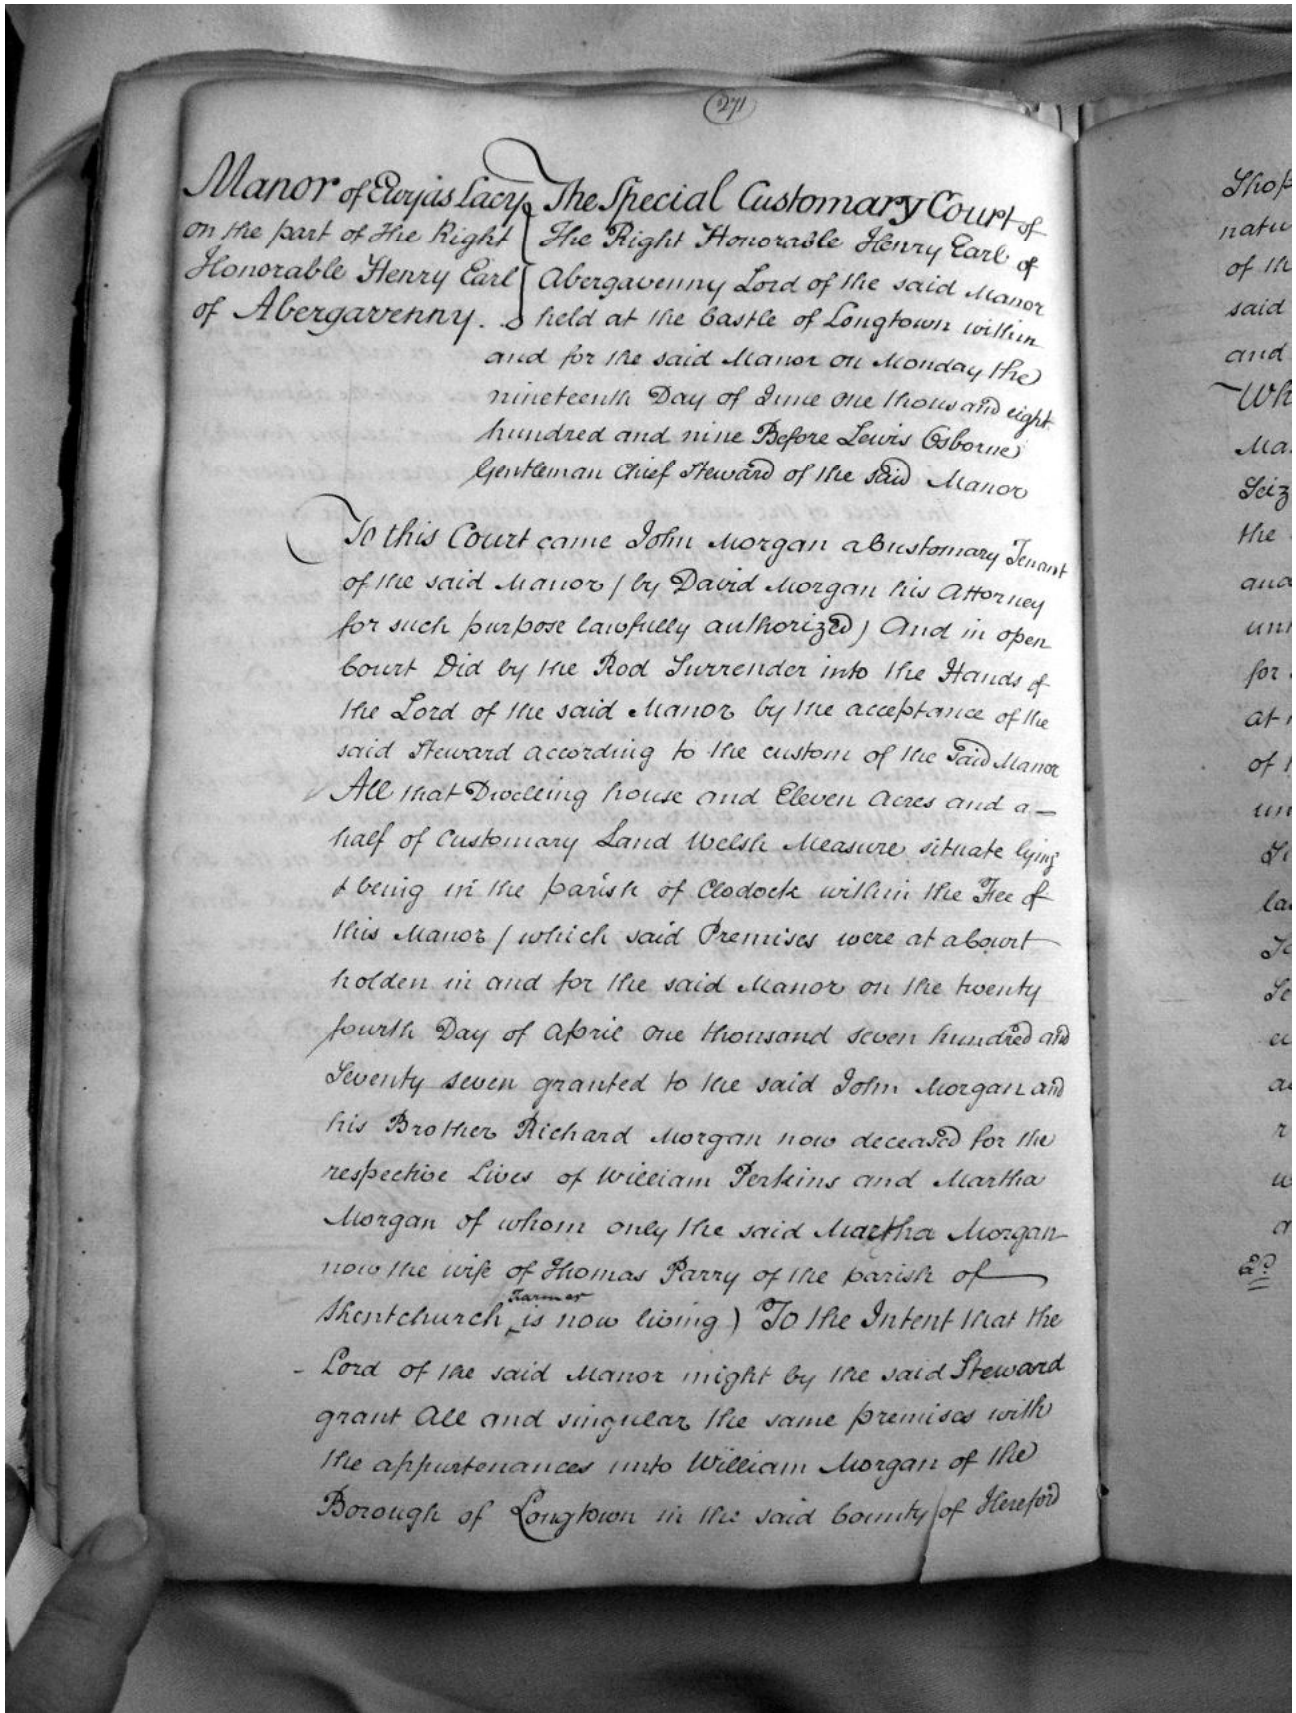 271
Manor of Ewyas Lacy
on the part of The Right
Honorable Henry Earl
of Abergavenny.
The Special Customary Court of
The Right Honorable Henry Earl of
Abergavenny Lord of the said Manor
held at the Castle of Longtown within
and for the said Manor on Monday the
nineteenth Day of June one thousand eight
hundred and nine Before Lewis Osborne
Gentleman Chief Steward of the said Manor
To this Court came John Morgan a Customary Tenant
of the said Manor (by David Morgan his Attorney
for such purpose lawfully authorized) And in open
Court Did by the Rod Surrender into the Hands of
the Lord of the said Manor by the acceptance of the
said Steward according to the custom of the said Manor
All that Dwelling house and Eleven Acres and a
half of Customary Land Welsh Measure situate lying
& being in the parish of Clodock within the Fee of
this Manor (which said Premises were at a Court
holden in and for the said Manor on the twenty
fourth Day of April one thousand seven hundred and
Seventy seven granted to the said John Morgan and
his Brother Richard Morgan now deceased for the
respective Lives of William Perkins and Martha
Morgan of whom only the said Martha Morgan
now the wife of Thomas Parry of the parish of
Farmer
Kentchurch is now living) To the Intent that the
Lord of the said Manor might by the said Steward
grant All and singular the same premises with
the appurtenances unto William Morgan of the
Borough of Longtown in the said County of Hereford
Shop
natu
of th
said
and
Wh
Ma
Seiz
the
and
unt
for
at
of
un
la